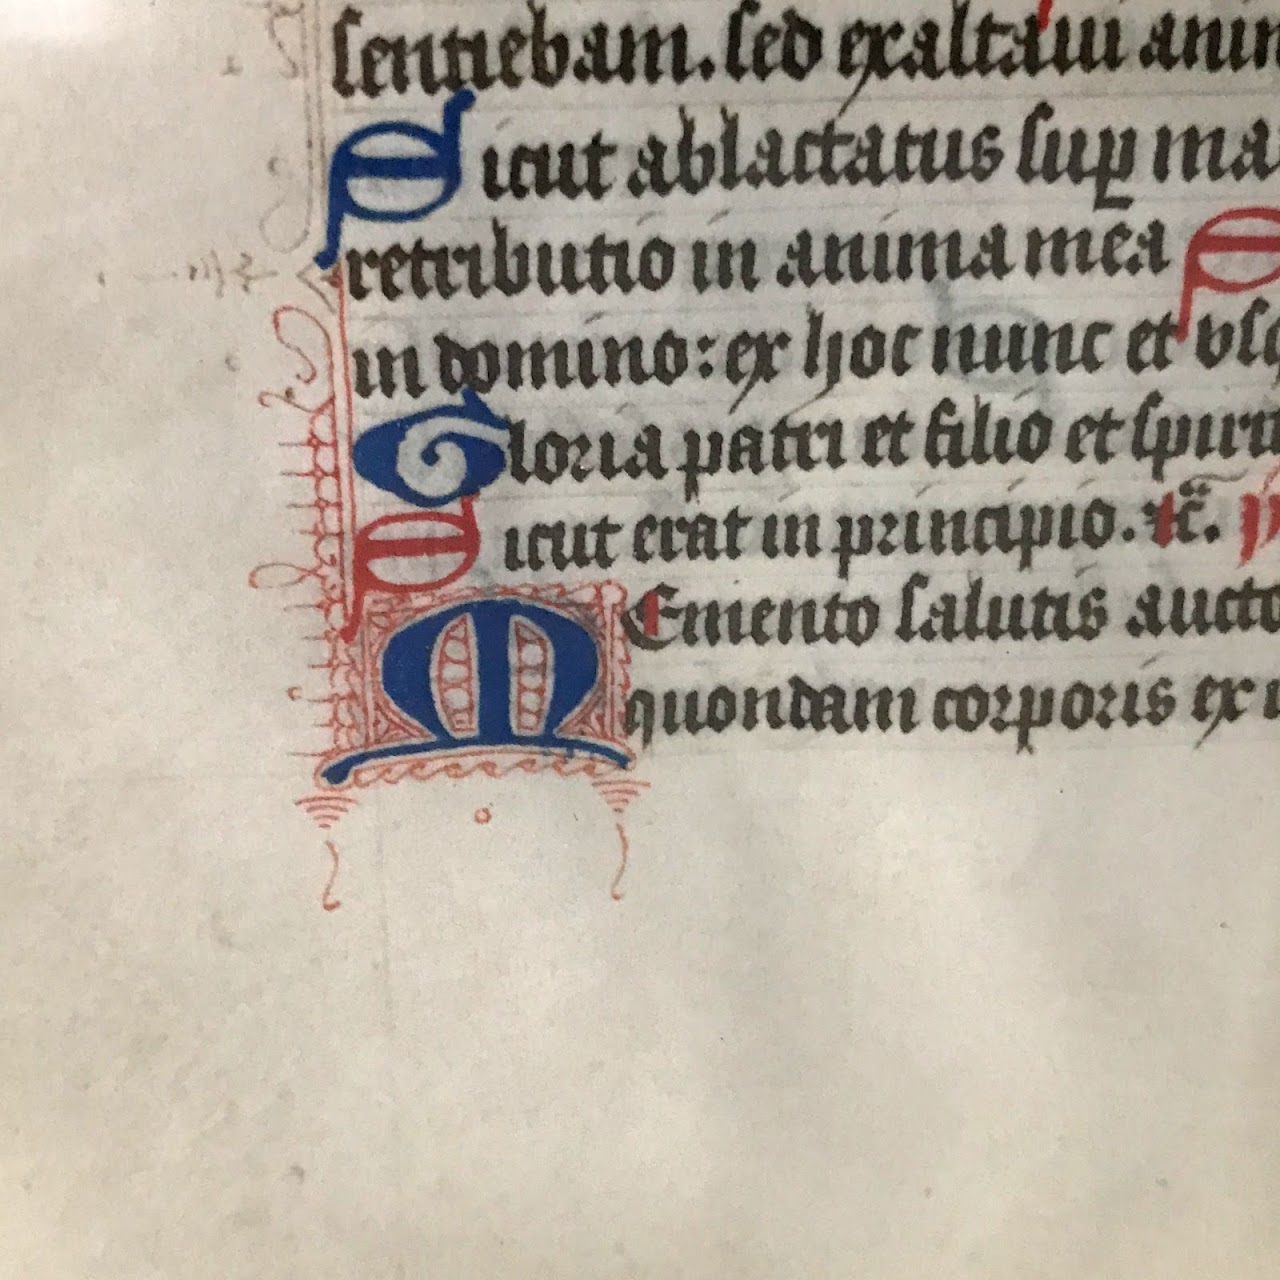 sentiebam. sed exaltaui anim
Sicut ablactatus sup ma
retributio in anima mea S
in domino: ex hoc nunc et vsq
Gloria patri et filio et spiritu
Sicut erat in principio. ⁊c̃.
MEmento salutis aucto
quondam corporis ex